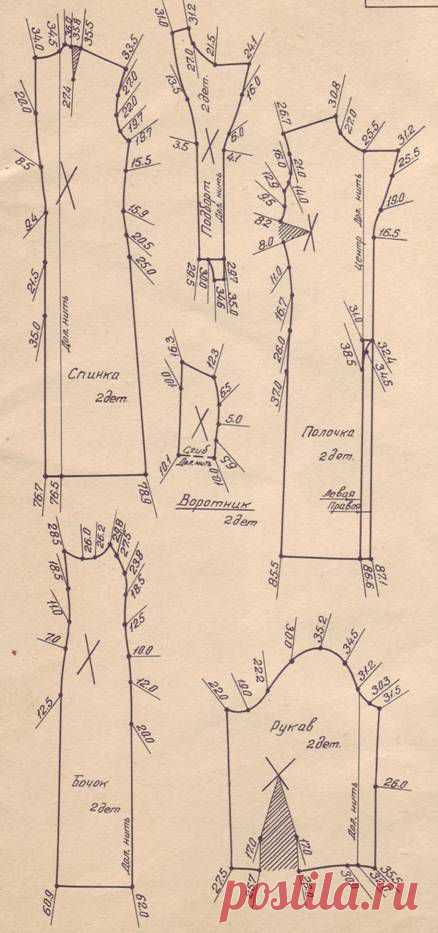 34.0
34.5
36.0
35.8
35.5
33.5
27.4
27.0
22.0
19.7
19.7
20.0
8.5
15.5
9.4
15.9
20.5
25.0
21.5
35.0
Дол. нить
Спинка
2 дет.
76.7
76.5
78.9
31.0
31.2
27.0
21.5
24.1
13.5
16.0
2 дет.
3.5
6.0
4.1
Подборт
Дол. нить
29.5
30.0
34.6
35.0
29.7
26.7
30.8
27.0
25.5
31.2
25.5
16.0
21.0
14.0
12.9
9.5
8.2
8.0
19.0
16.5
Центр
Дол. нить
11.0
16.7
26.0
37.0
31.0
38.5
32.4
34.5
Полочка
2 дет.
Левая
Правая
85.5
86.6
87.1
16.3
12.3
10.0
6.5
5.0
Сгиб
Дол. нить
10.1
10.0
6.5
Воротник
2 дет
28.5
26.0
26.2
29.8
27.5
23.8
18.5
18.5
11.0
12.5
7.0
10.0
12.5
12.0
20.0
Бочок
2 дет
Дол. нить
60.9
62.0
22.0
10.0
22.2
30.0
35.2
34.5
31.2
30.3
31.5
Рукав
2 дет.
Дол. нить
26.0
17.0
17.0
27.5
35.5
postila.ru